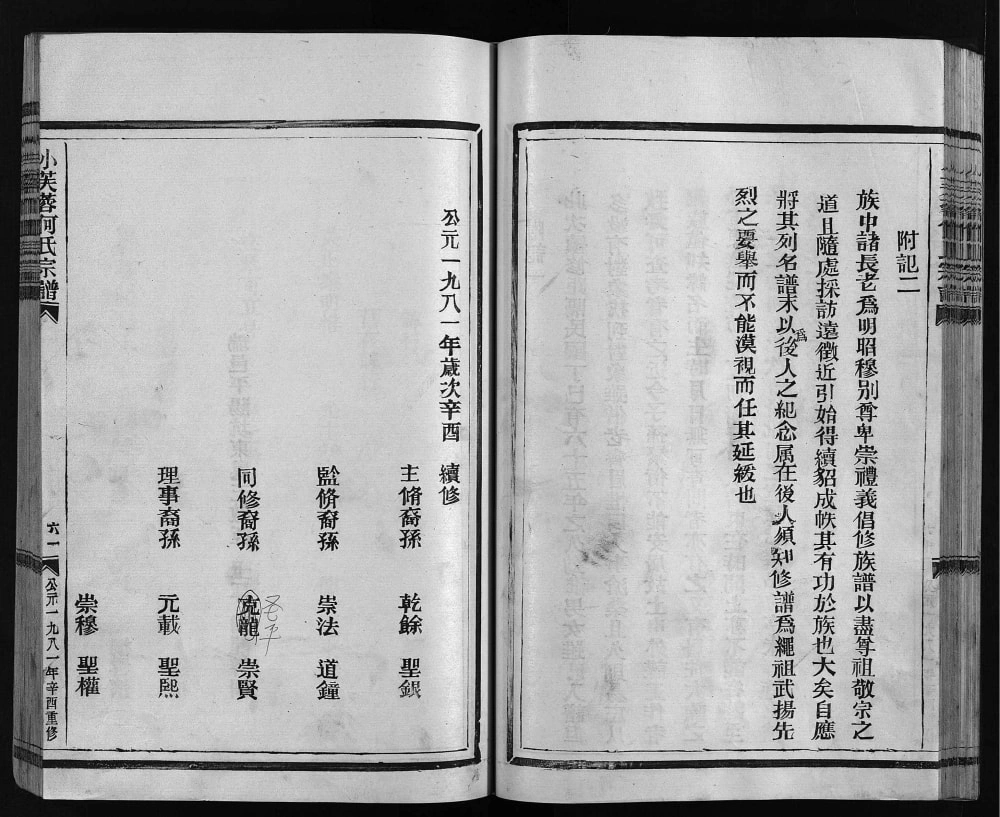 附記二
族中諸長老爲明昭穆別尊卑崇禮義倡修族譜以盡尊祖敬宗之
道且隨處採訪遠徵近引始得續貂成帙其有功於族也大矣自應
將其列名譜末以爲後人之紀念属在後人須知修譜爲繩祖武揚先
烈之要舉而不能漠視而任其延緩也
公元一九八一年歲次辛酉 續修
主脩裔孫 乾餘 聖銀
監脩裔孫 崇法 道鐘
同修裔孫 克龍 崇賢
理事裔孫 元載 聖熙
崇穆 聖權
小芙蓉何氏宗譜
六一
公元一九八一年辛酉重修